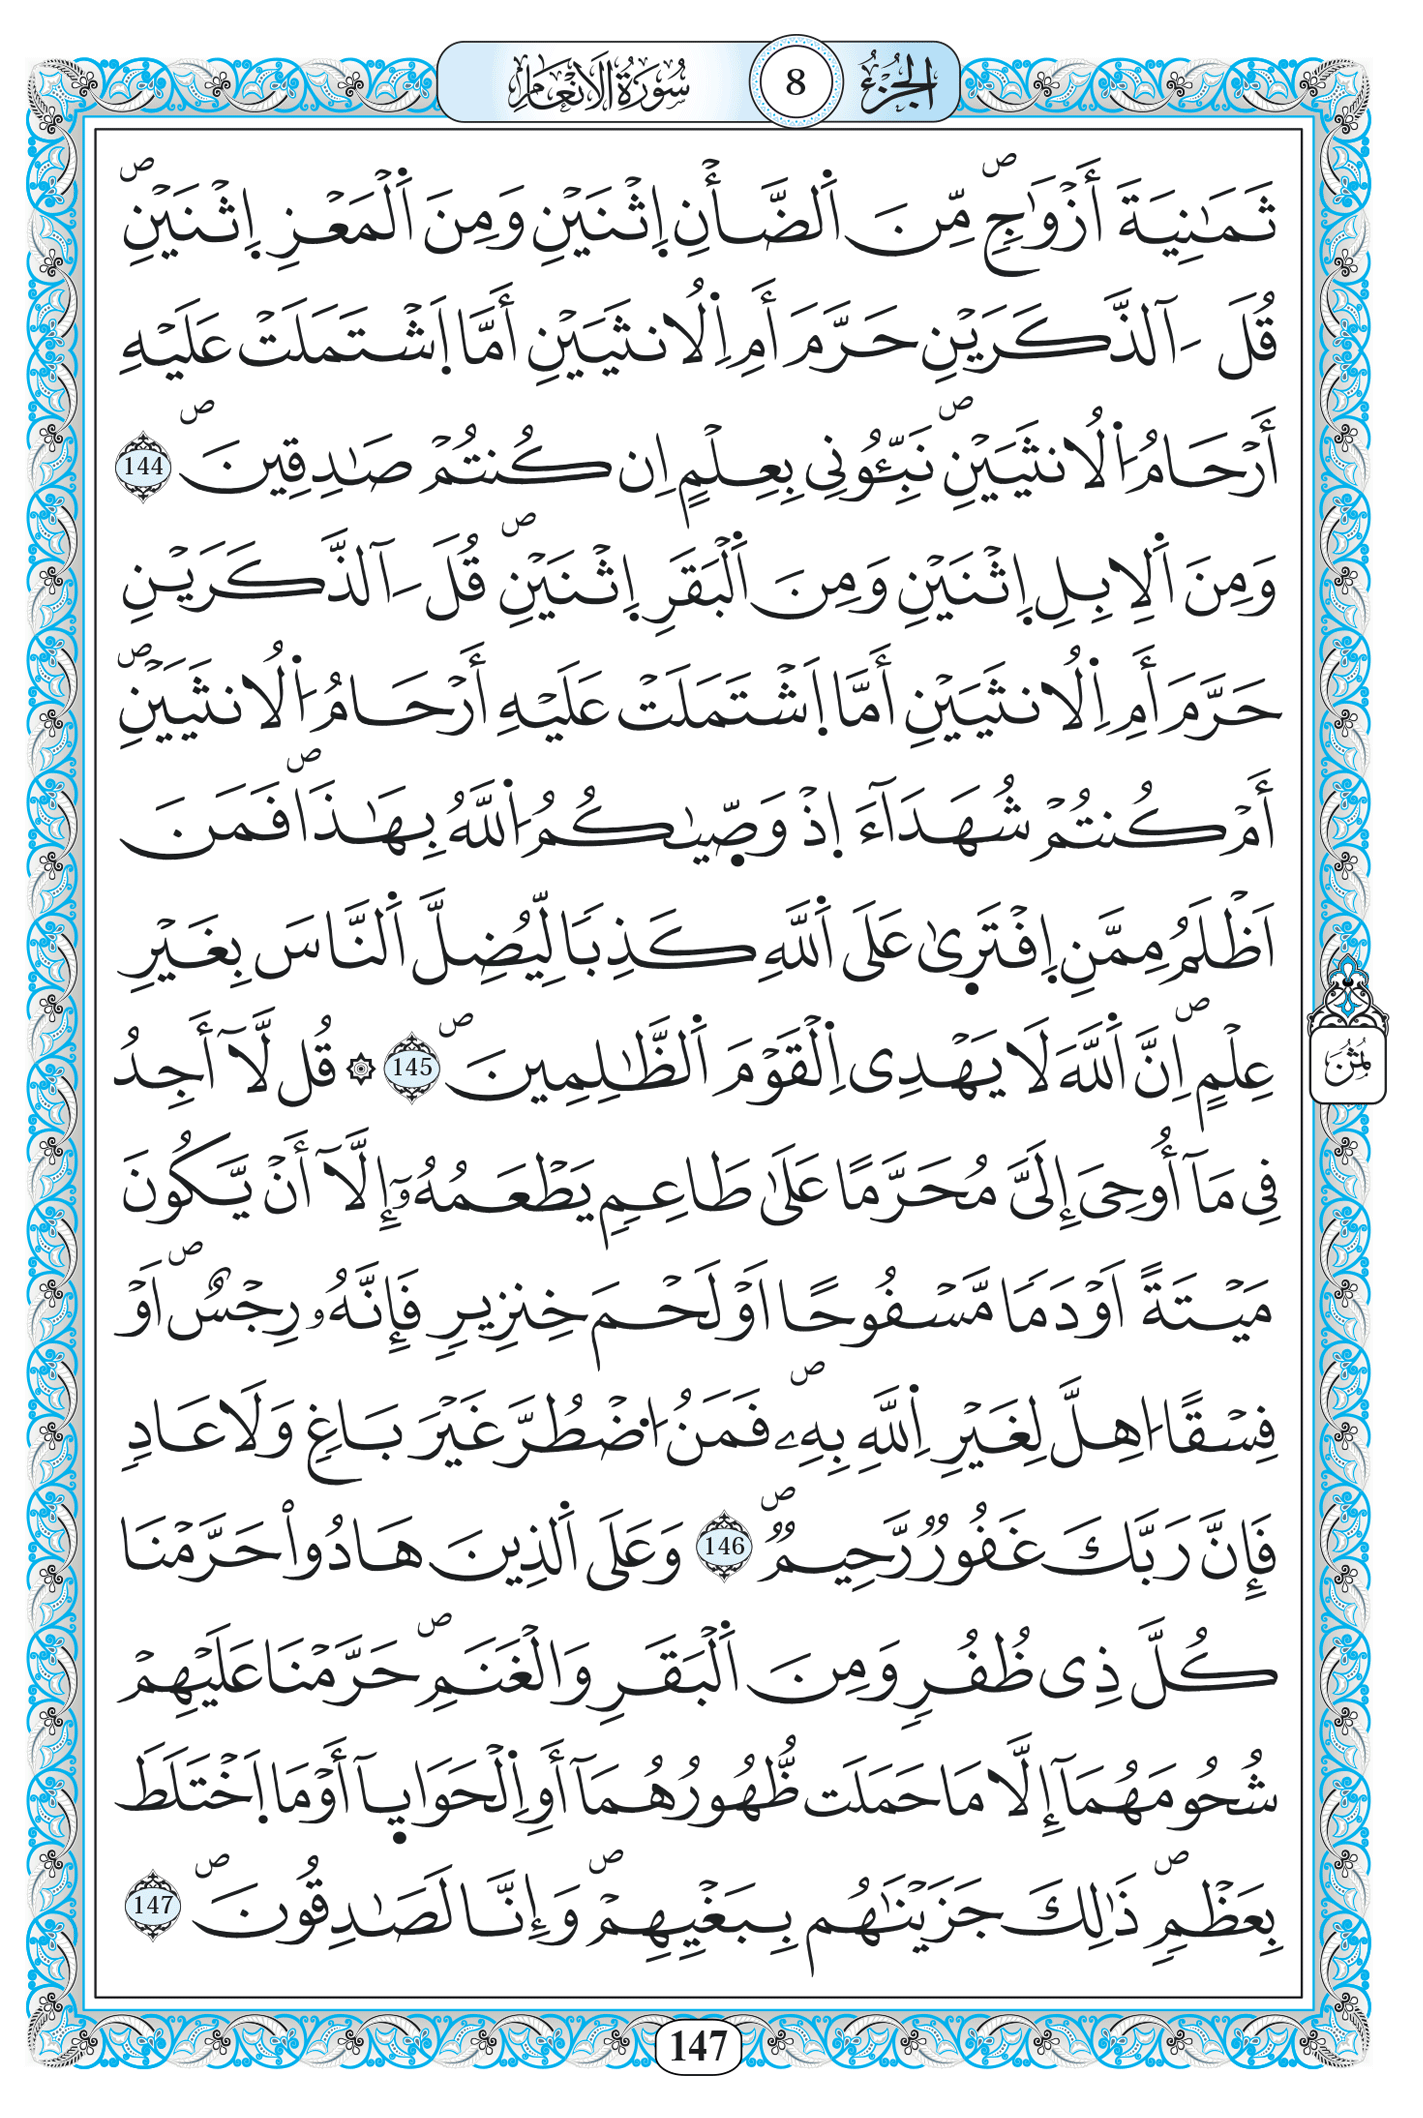 الجزء 8 سورة الانعام
ثَمَٰنِيَةَ أَزْوَٰجٖ ص مِّنَ اَ۬لضَّأْنِ إِثْنَيْنِ وَمِنَ اَ۬لْمَعْزِ إِثْنَيْنِ ص
قُلَ ـآلذَّكَرَيْنِ حَرَّمَ أَمِ اِ۬لُانثَيَيْنِ أَمَّا اَشْتَمَلَتْ عَلَيْهِ
أَرْحَامُ اُ۬لُانثَيَيْنِ ص نَبِّـُٔونِى بِعِلْمٍ اِن كُنتُمْ صَٰدِقِينَ ص 144
وَمِنَ اَ۬لِابِلِ إِثْنَيْنِ وَمِنَ اَ۬لْبَقَرِ إِثْنَيْنِ ص قُلَ ـآلذَّكَرَيْنِ
حَرَّمَ أَمِ اِ۬لُانثَيَيْنِ أَمَّا اَشْتَمَلَتْ عَلَيْهِ أَرْحَامُ اُ۬لُانثَيَيْنِ ص
أَمْ كُنتُمْ شُهَدَآءَ اِذْ وَصّ۪يٰكُمُ اُ۬للَّهُ بِهَٰذَا ص فَمَنَ
اَظْلَمُ مِمَّنِ إِفْتَر۪يٰ عَلَى اَ۬للَّهِ كَذِباٗ لِّيُضِلَّ اَ۬لنَّاسَ بِغَيْرِ
عِلْمٍ ص اِنَّ اَ۬للَّهَ لَا يَهْدِى اِ۬لْقَوْمَ اَ۬لظَّٰلِمِينَ ص 145 ۞ قُل لَّآ أَجِدُ
فِى مَآ أُوحِىَ إِلَىَّ مُحَرَّمًا عَلَىٰ طَاعِمٖ يَطْعَمُهُۥٓ إِلَّآ أَنْ يَّكُونَ
مَيْتَةً اَوْ دَماٗ مَّسْفُوحًا اَوْ لَحْمَ خِنزِيرٖ فَإِنَّهُۥ رِجْسٌ ص اَوْ
فِسْقًا اُهِلَّ لِغَيْرِ اِ۬للَّهِ بِهِۦ ص فَمَنُ اُ۟ضْطُرَّ غَيْرَ بَاغٖ وَلَا عَادٖ
فَإِنَّ رَبَّكَ غَفُورٞ رَّحِيمٞ ص 146 وَعَلَى اَ۬لذِينَ هَادُواْ حَرَّمْنَا
كُلَّ ذِى ظُفُرٖ وَمِنَ اَ۬لْبَقَرِ وَالْغَنَمِ ص حَرَّمْنَا عَلَيْهِمْ
شُحُومَهُمَآ إِلَّا مَا حَمَلَت ظُّهُورُهُمَآ أَوِ اِ۬لْحَوَاي۪آ أَوْ مَا اَخْتَلَطَ
بِعَظْمٖ ص ذَٰلِكَ جَزَيْنَٰهُم بِبَغْيِهِمْ ص وَإِنَّا لَصَٰدِقُونَ ص 147
ثمن
147